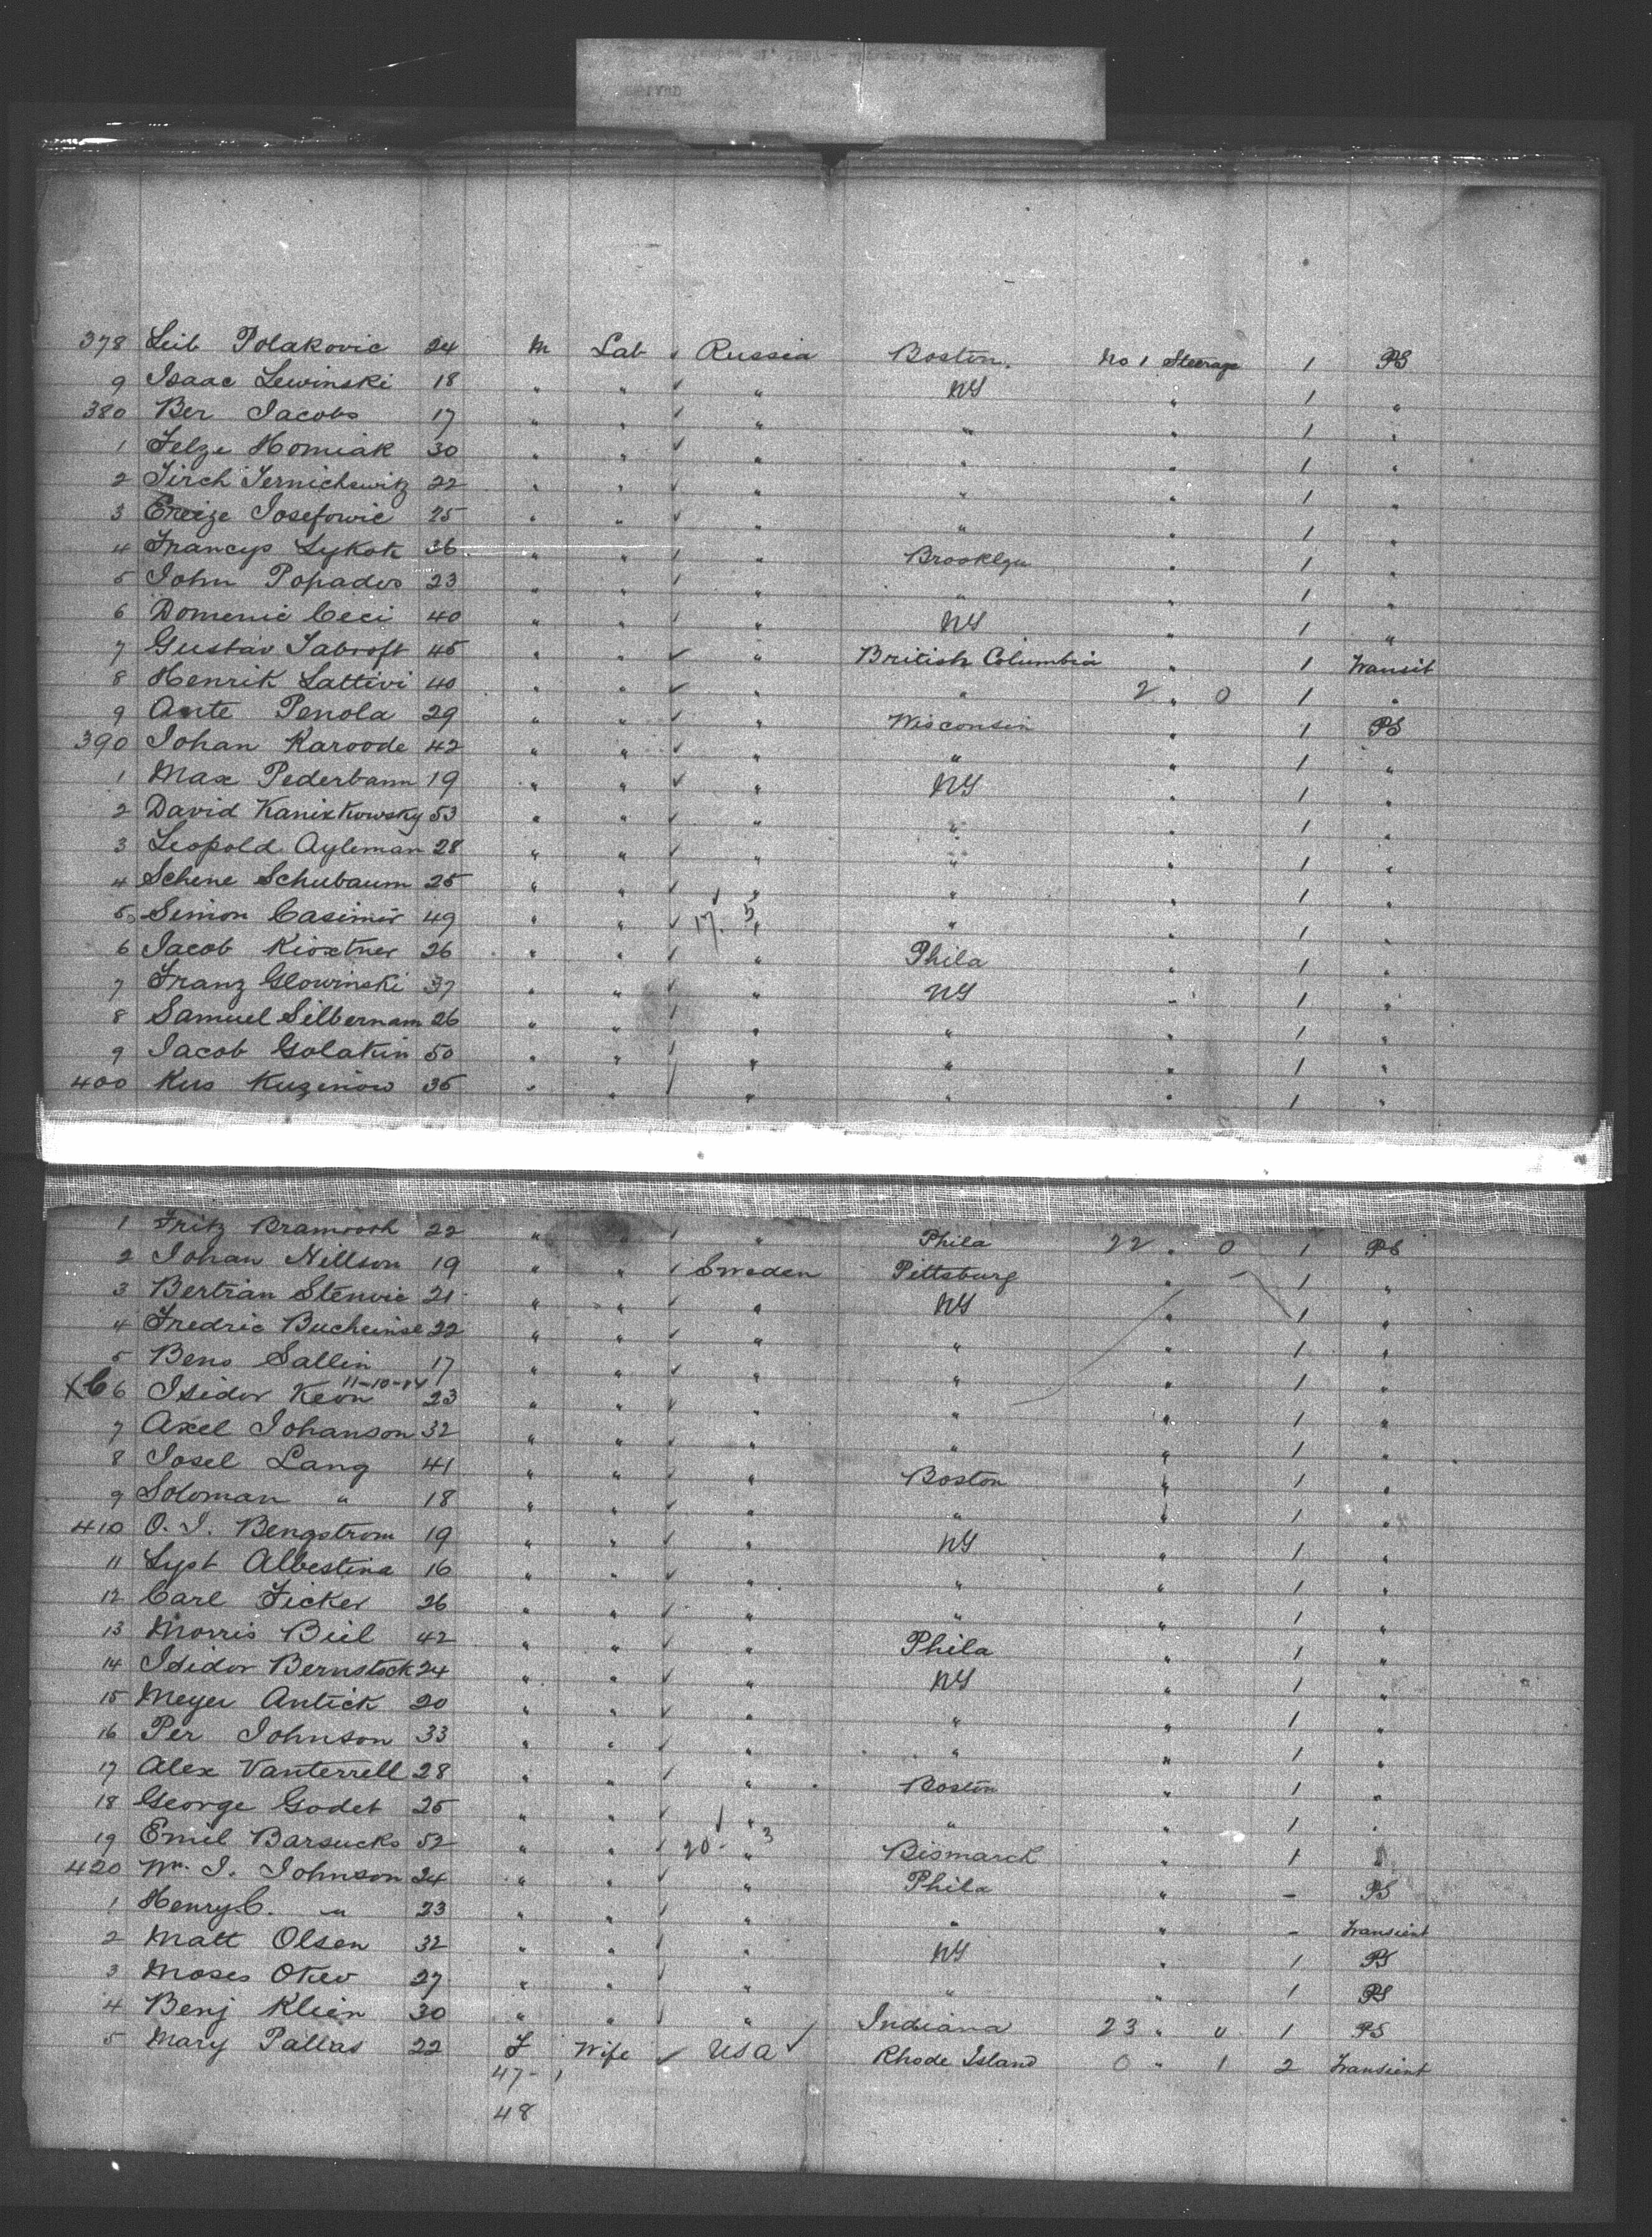 378 Leib Polakovic 24 M Lab ✓ Russia Boston. No 1 Steerage 1 PS
9 Isaac Lewinski 18 " " ✓ " NY " 1 "
380 Ber Jacobs 17 " " ✓ " " " 1 "
1 Felze Homiak 30 " " ✓ " " " 1 "
2 Jirch Jernichewitz 22 " " ✓ " " " 1 "
3 Josefowic 25 " " ✓ " " " 1 "
4 Francys Lykok 36 " " ✓ " Brooklyn " 1 "
5 John Popados 23 " " ✓ " " " 1 "
6 Domenic Ceci 40 " " ✓ " NY " 1 "
7 Gustav Jabroft 45 " " ✓ " British Columbia " 1 Transit
8 Henrik Lattivi 40 " " ✓ " " 2 " 0 1 "
9 Ante Penola 29 " " ✓ " Wisconsin " 1 PS
390 Johan Karoode 42 " " ✓ " " " 1 "
1 Max Pederbann 19 " " ✓ " NY " 1 "
2 David Kanixkowsky 53 " " ✓ " " " 1 "
3 Leopold Ayleman 28 " " ✓ " " " 1 "
4 Schene Schubaum 25 " " ✓ " " " 1 "
5 Simon Casimir 49 " " ✓ 17. 3 " " " 1 "
6 Jacob Kioxtner 26 " " ✓ " Phila " 1 "
7 Franz Glowinski 37 " " ✓ " NY " 1 "
8 Samuel Silbernam 26 " " ✓ " " " 1 "
9 Jacob Golatin 50 " " ✓ " " " 1 "
400 Kus Kuzeniow 35 " " ✓ " " " 1 "
1 Fritz Bramrosh 22 " " ✓ " Phila 22 " 0 1 PS
2 Johan Nillson 19 " " ✓ Sweden Pittsburg " 1 "
3 Bertran Stenvic 21 " " ✓ " NY " 1 "
4 Fredric Bucheinse 22 " " ✓ " " " 1 "
5 Beno Sallin 17 " " ✓ " " " 1 "
XC 6 Isidor Keon 11-10-84 23 " " ✓ " " " 1 "
7 Axel Johanson 32 " " ✓ " " " 1 "
8 Josel Lang 41 " " ✓ " Boston " 1 "
9 Soloman " 18 " " ✓ " " " 1 "
410 O. J. Bengstrom 19 " " ✓ " NY " 1 "
11 Lyst Albestina 16 " " ✓ " " " 1 "
12 Carl Ficker 26 " " ✓ " " " 1 "
13 Morris Biel 42 " " ✓ " Phila " 1 "
14 Isidor Bernstock 24 " " ✓ " NY " 1 "
15 Meyer Antick 20 " " ✓ " " " 1 "
16 Per Johnson 33 " " ✓ " " " 1 "
17 Alex Vanterrell 28 " " ✓ " Boston " 1 "
18 George Godet 25 " " ✓ " " " 1 "
19 Emil Barsucks 52 " " ✓ 20 - 3 " Bismarck " 1
420 Wm. J. Johnson 24 " " ✓ " Phila " - PS
1 Henry C. " 23 " " ✓ " " " - Transient
2 Matt Olsen 32 " " ✓ " NY " 1 PS
3 Moses Okev 27 " " ✓ " " " 1 PS
4 Benj Klein 30 " " ✓ " Indiana 23 " 0 1 PS
5 Mary Pallas 22 F Wife ✓ USA ✓ Rhode Island 0 " 1 2 Transient
47-1
48